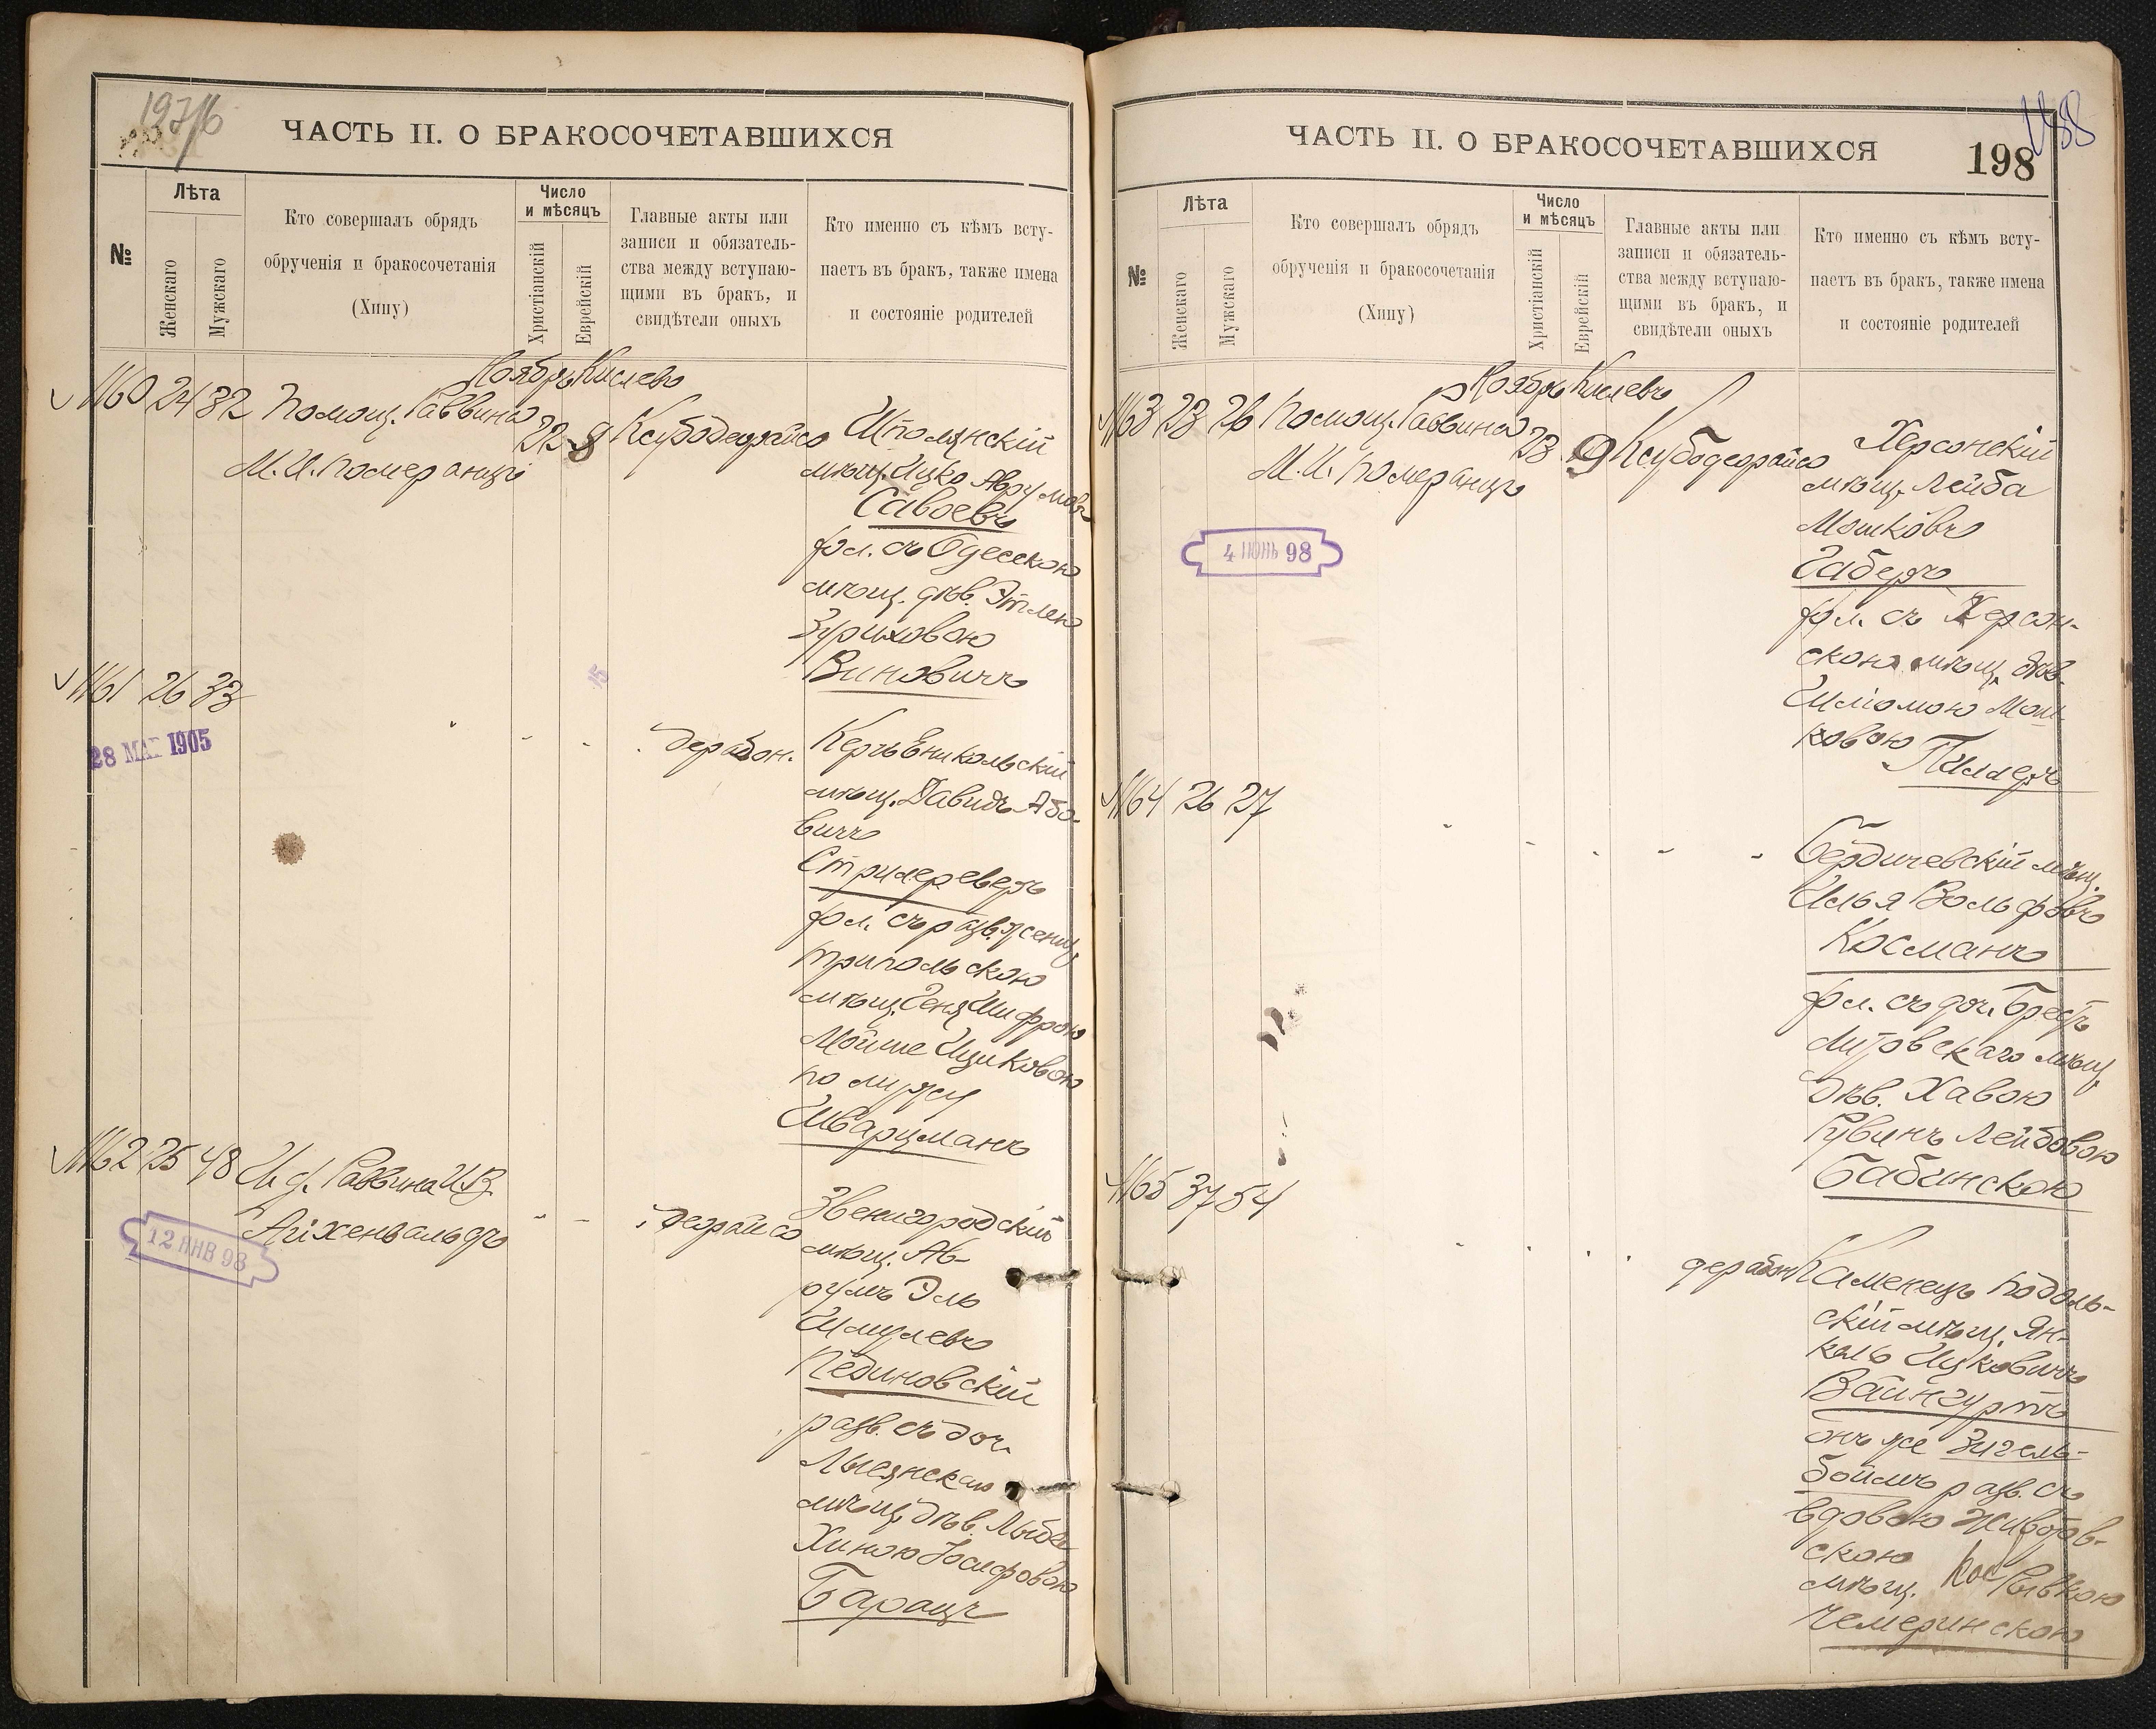 197/6
ЧАСТЬ II. О БРАКОСОЧЕТАВШИХСЯ
№
Лѣта
Женскаго
Мужскаго
Кто совершалъ обрядъ
обрученія и бракосочетанія
(Хипу)
Число
и мѣсяцъ
Христіанскій
Еврейскій
Главные акты или
записи и обязатель-
ства между вступаю-
щими въ бракъ, и
свидѣтели оныхъ
Кто именно съ кѣмъ всту-
паетъ въ бракъ, также имена
и состояніе родителей
Ноябрь Кислевъ
1160 24 32 Помощ. Раввина
М. И. Померанцъ
22 8
Шполянскій
мѣщ. Ицко Аврумовъ
Савоевъ
хол. съ Одесскою
мѣщ. дѣв. Этлею
Зуриховою
Виновичъ
1161 26 33
28 МАР 1905
дерабон. Керчь Еникольскій
мѣщ. Давидъ Або-
вичъ
Стрилереверъ
хол. съ разв. женщ.
трипольскою
мѣщ. Геня Шифрою
Мойше Ициковою
по мужу
Шварцманъ
1162 25 48 И. д. Раввина И. В.
Айхенвальдъ
12 ЯНВ 98
деорайсо
Звенигородскій
мѣщ. Ав-
румъ Эль
Шмулевъ
Пединовскій
разв. съ доч.
Лысянскаго
мѣщ. дѣв.
Хиною Іосифовою
Баращъ
ЧАСТЬ II. О БРАКОСОЧЕТАВШИХСЯ
198
№
Лѣта
Женскаго
Мужскаго
Кто совершалъ обрядъ
обрученія и бракосочетанія
(Хипу)
Число
и мѣсяцъ
Христіанскій
Еврейскій
Главные акты или
записи и обязатель-
ства между вступаю-
щими въ бракъ, и
свидѣтели оныхъ
Кто именно съ кѣмъ всту-
паетъ въ бракъ, также имена
и состояніе родителей
Ноябрь Кислевъ
1163 23 26 Помощ. Раввина
М. И. Померанцъ
23 9
4 ІЮНЬ 98
Херсонскій
мѣщ. Лейба
Мошковъ
Габеръ
хол. съ Херсон-
скою мѣщ. дѣв.
Шліомою Мош-
ковою
Пиллеръ
1164 26 27
Бердичевскій мѣщ.
Илья Вольфовъ
Косманъ
хол. съ доч. Брестъ
Литовскаго мѣщ.
дѣв. Хавою
Рувинъ Лейбовою
Бабинскою
1165 37 54
дерабон Каменецъ Подоль-
скій мѣщ. Ян-
кель Ицковичъ
Вайнгуртъ
онъ же Зигель-
боймъ разв. съ
вдовою Животов-
скою
мѣщ. Рывкою
Чемеринскою